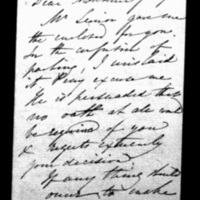 Dear
Mr Senior gave me
the enclosed for you.
In the confusion of
parting, I mislaid
it Pray excuse me
He is persuaded that
no oath at all will
be required of you
& regrets extremely
your decision
If any thing should
occur to make